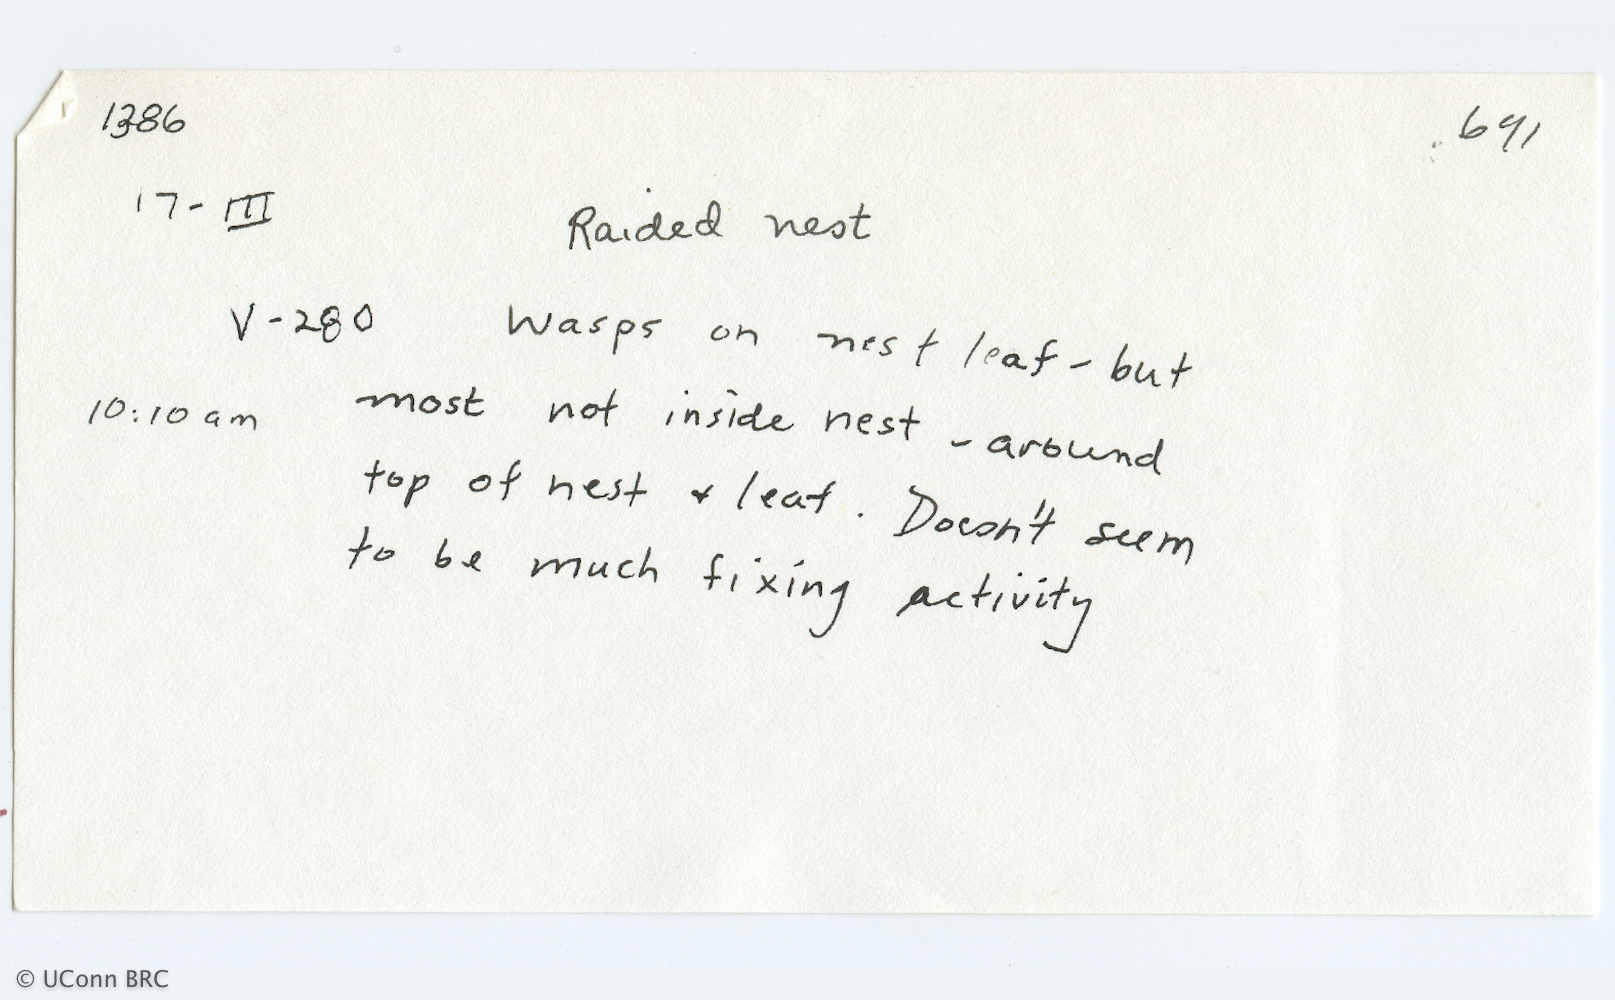 1386
691
17-III
Raided nest
V-280 Wasps on nest leaf - but
10:10 am most not inside nest - around
top of nest & leaf. Doesn't seem
to be much fixing activity
© UConn BRC